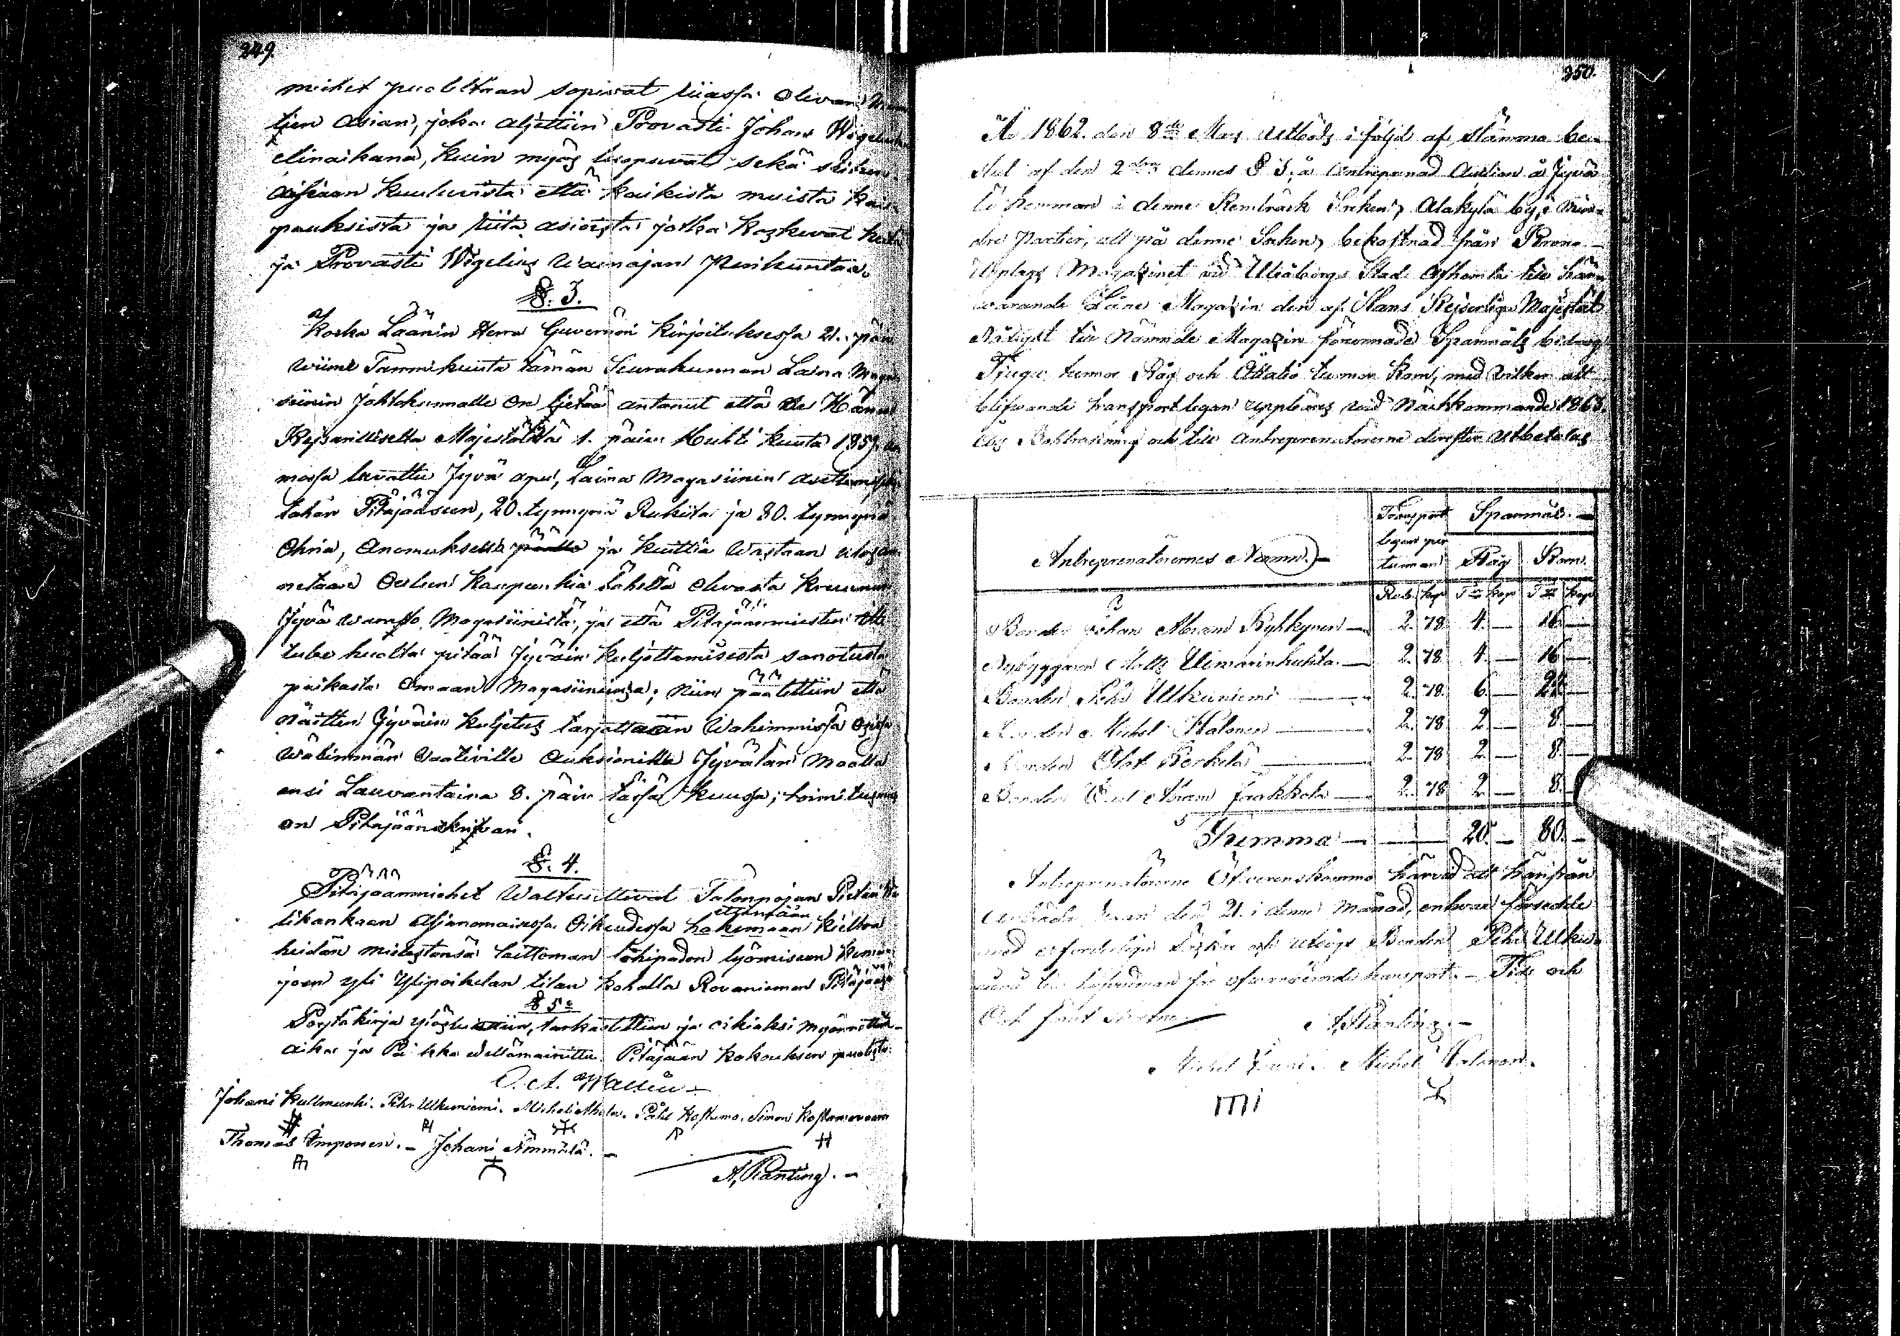 249.
miehet puolestaan sopivat tiassa olevan
tien asian, joka aljettiin Provasti Johan Wegelius
elinaikana, kuin myös luopuvat sekä siihen
asiaan kuuluvista että kaikista muista kai-
pauksista ja siitä asioista jotka koskevat heitä
ja Provasti Wegelius wainajan Perikuntaa.
§. 3.
Koska Läänin Herra Guvernöri kirjoituksessa 21. päiv
wiime Tammikuuta tämän Seurakunnan Laina Maga
siinin Johtokunnalle on tietää antanut että se Hänen
Keisarilliselta Majestätiltä 1. päiv Huhti kuuta 1859
mossa luvattu Jyvä apu, Laina Magasiinin auttamiseksi
tähän Pitäjääseen, 20. tynnyriä Rukiita ja 80. tynnyriä
Ohria, anomuksella ja kuittia wastaan ulos an-
netaan Oulun kaupunkia lähellä olevasta kruunun
Jyvä waraston Magasiinista, ja että Pitäjäänmiesten
tulee huolta pitää Jyväin kuljettamisesta sanotusta
paikasta omaan Magasiiniinsa; niin päätettiin että
näitten Jyväin kuljetus tarjottaan Wähimmissä osissa
wähimmän vaativille Auksionilla Jyvälän Maalla
ensi Lauvantaina 8. päiv tässä kuussa; toimitusmies
on Pitäjäänskrifvari.
§. 4.
Pitäjäänmiehet Waltuuttivat Talonpojan Pietari
likankaan Asianomaisessa Oikeudessa hakemaan kieltoa
etsimään
heidän mielestänsä laittoman lohipadon lyömiseen Kemin
joen yli Ylipaikalan tilan kohalla Rovaniemen Pitäjää
§ 5
Pöytäkirja ylösluettiin, tarkastettiin ja oikiaksi myönnettiin
aika ja Paikka edellämainittu. Pitäjään kokouksen puolesta
O. A. Wallin
Johani Kullmunki. Pehr Ulkuniemi. Pähl Kostamo. Simon Kostamovaara
Thomas Imponen. – Johani Ämmälä. –
A, Planting. –
350.
År 1862. den 8de Maj utböds i följd af Stämmo be-
slut af den 2dra dennes § 3, å entreprenad Auction å Jyvä-
lä hemman i denne Kemiträsk Socken, Alakylä by, i min-
dre partier, att på denne Socken, bekostnad från Krono-
Upplags Magazinet vid Uleåborgs Stad afhemta till här-
varande Låne Magazin den af Hans Kejserliga Majestät
Nådigst till nämnde Magazin förunnade Spannmåls bidrag
Tjugu tunnor Råg och Åttatio tunnor Korn, med vilkor att
blifvande transportlegan uppbäres vid nästkommande 1863.
års Bokbrottning och till Antreprenörerne direkte utbetalas
Antreprenatörernes Namn. –
Transport
legan per
tunnan
Spannmål. –
Råg
Korn.
Rub. kop
Tr kap
Tr kap
Bonden Johan Abram Kyhkynen – 2. 78 4. – 16 –
Nybyggaren Matts Uimarinhuhta – 2. 78 4. – 16 –
Bonden Pehr Ulkuniemi – 2. 78. 6. – 24 –
Bonden Michel Halonen – 2. 78 2 – 8 –
Bonden Olof Perkelä – 2. 78 2 – 8 –
Bonden Abram Jaakkola – 2. 78 2 – 8. –
Summa – – 20 – 80. –
Antreprenatörerne Öfverenskommo härvid att härifrån
den 21. i denne månad, enhvar försedde
med erforderliga och utsågs Bonden Pehr Ulku-
niemi till hufvudman för ofvanrörande transport. – Tid och
Ort först skrefne
A, Planting. –
Michel Michel Halonen.